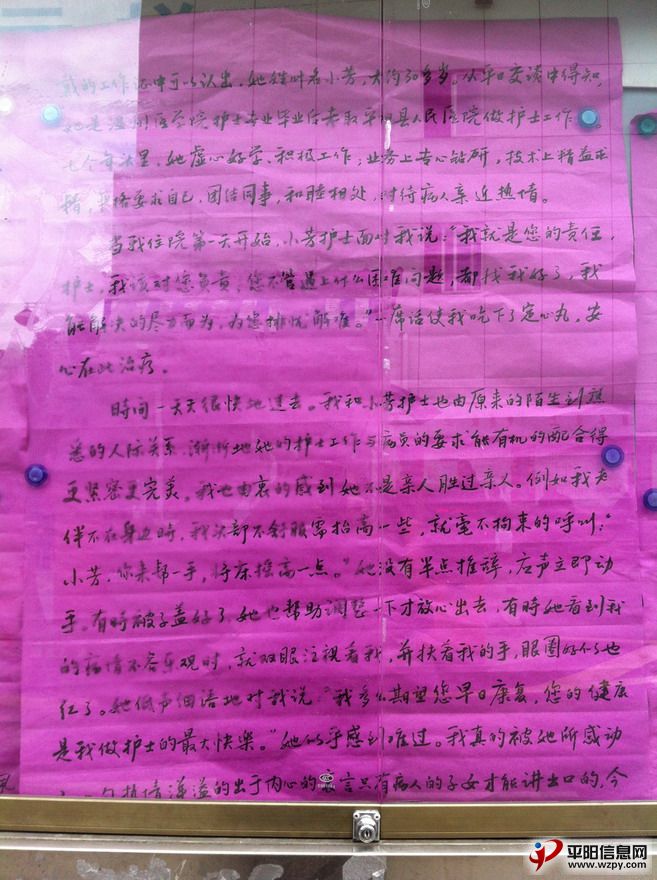 戴的工作证中可以认出，她姓叶名小芳，大约30多岁。从平日交谈中得知，
她是温州医学院护士专业毕业后考取平阳县人民医院做护士工作。
七个年头里，她虚心好学，积极工作；业务上专心钻研，技术上精益求
精，严格要求自己，团结同事，和睦相处，对待病人亲近热情。
当我住院第一天开始，小芳护士面对我说：“我就是您的责任
护士，我该对您负责，您不管遇上什么困难问题，都找我好了，我
能解决的尽力而为，为您排忧解难。”一席话使我吃下了定心丸，安
心在此治疗。
时间一天天很快地过去。我和小芳护士也由原来的陌生到熟
悉的人际关系，渐渐地她的护士工作与病员的要求能有机的配合得
更紧密更完美。我也由衷的感到她不是亲人胜过亲人。例如我老
伴不在身边时，我头部不舒服需抬高一些，就毫不拘束的呼叫：“
小芳，你来帮一手，将床摇高一点。”她没有半点推辞，应声立即动
手。有时被子盖好了，她也帮助调整一下才放心出去，有时她看到我
的病情不容乐观时，就双眼注视着我，并扶着我的手，眼圈好似也
红了。她低声细语地对我说：“我多么期望您早日康复，您的健康
是我做护士的最大快乐。”她似乎感到难过。我真的被她所感动
一句热情洋溢的出于内心的言只有病人的子女才能讲出口的，今
平阳信息网
www.wzpy.com